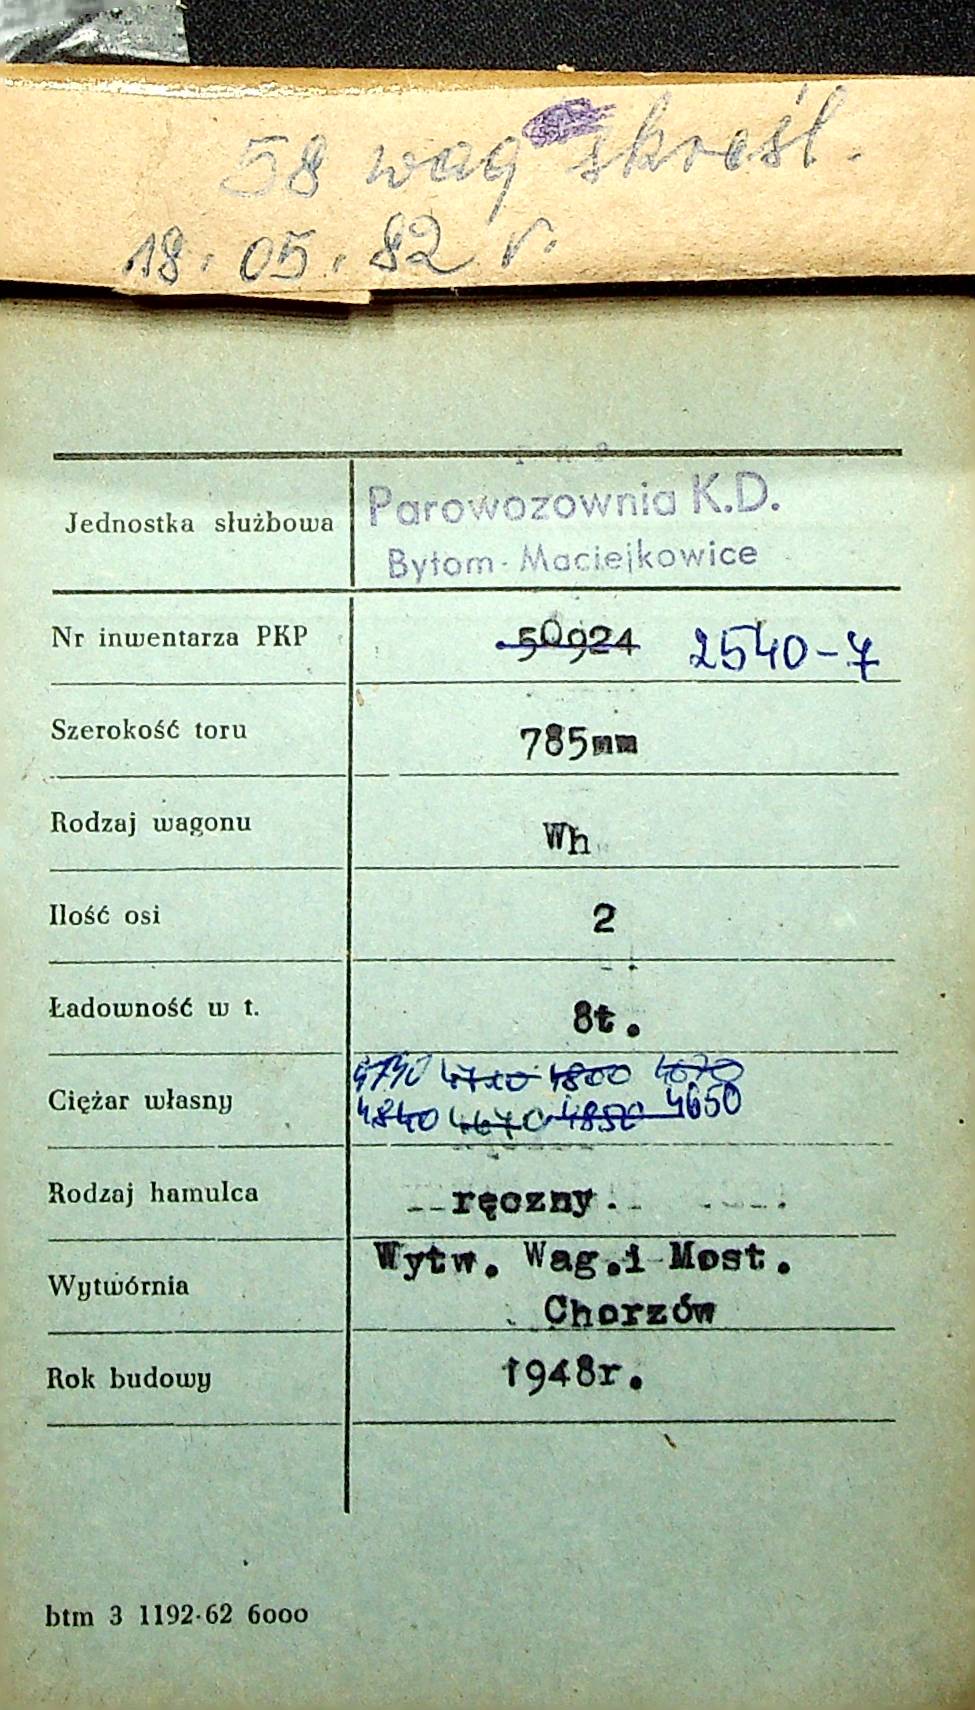 58 wag skreśl.
18.05.82 r.
P K P
Jednostka służbowa Parowozownia K.D.
Bytom-Maciejkowice
Nr inwentarza PKP 50924 2540-7
Szerokość toru 785mm
Rodzaj wagonu Wh
Ilość osi 2
Ładowność w t. 8t.
4790 4710 4800 4670
Ciężar własny 4840 4670 4850 4650
Rodzaj hamulca ręczny.
Wytwórnia Wytw. Wag.i Most.
Chorzów
Rok budowy 1948r.
btm 3 1192-62 6000